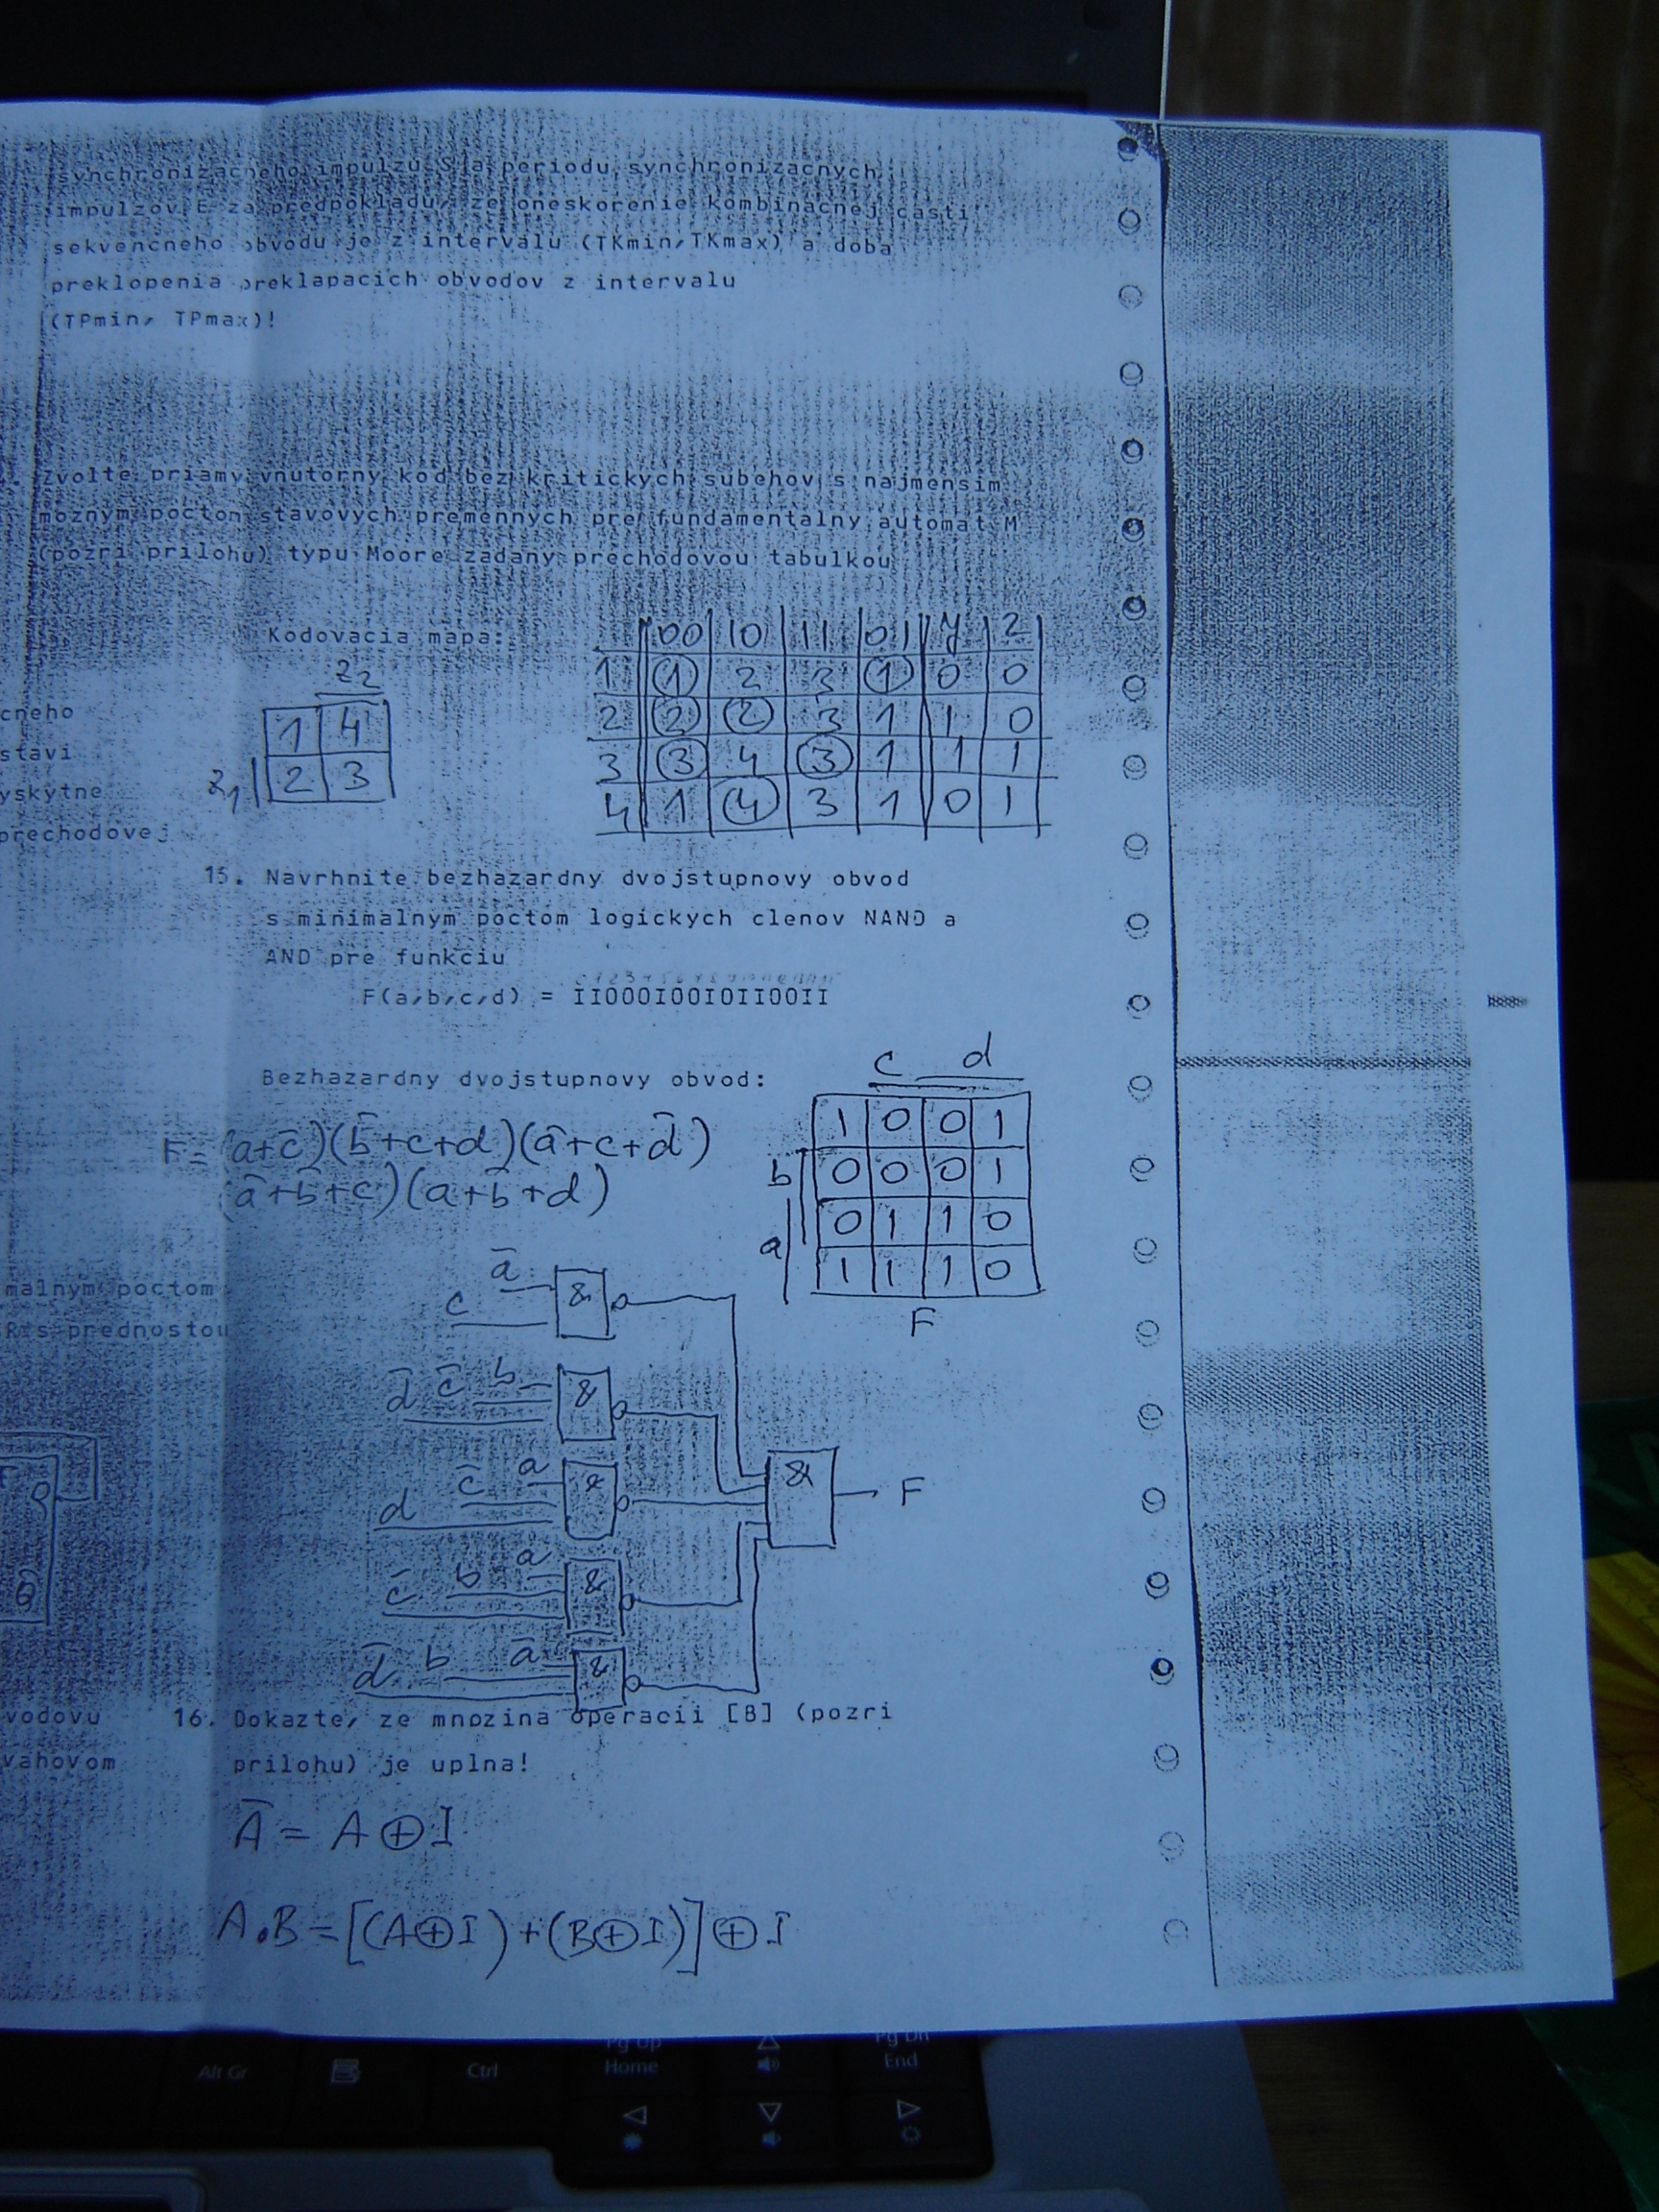 synchronizacneho impulzu S a periodu synchronizacnych
impulzov E za predpokladu, ze oneskorenie kombinacnej casti
sekvencneho obvodu je z intervalu (TKmin,TKmax) a doba
preklopenia preklapacich obvodov z intervalu
(TPmin, TPmax)!
Zvolte priamy vnutorny kod bez kritickych subehov s najmensim
moznym poctom stavovych premennych pre fundamentalny automat M
(pozri prilohu) typu Moore zadany prechodovou tabulkou
Kodovacia mapa:
z2
1 4
z1 2 3
00 10 11 01 y z
1 1 2 3 1 0 0
2 2 2 3 1 1 0
3 3 4 3 1 1 1
4 1 4 3 1 0 1
cneho
stavi
yskytne
prechodovej
15. Navrhnite bezhazardny dvojstupnovy obvod
s minimalnym poctom logickych clenov NAND a
AND pre funkciu
F(a,b,c,d) = IIOOOIOOIOIIOOII
Bezhazardny dvojstupnovy obvod:
c d
1 0 0 1
b 0 0 0 1
a 0 1 1 0
1 1 1 0
F
F = (a+c̄)(b̄+c+d)(ā+c+d̄)
(ā+b̄+c)(a+b̄+d)
malnym poctom
RS prednostou
ā c &
d̄ c̄ b &
d c̄ a &
c̄ b a &
d̄ b ā &
& F
Q
Q
vodovu
vahovom
16. Dokazte, ze mnozina operacii [B] (pozri
prilohu) je uplna!
Ā = A⊕I
A.B = [(A⊕I)+(B⊕I)]⊕I
Alt Gr
Ctrl
Pg Up
Home
Pg Dn
End